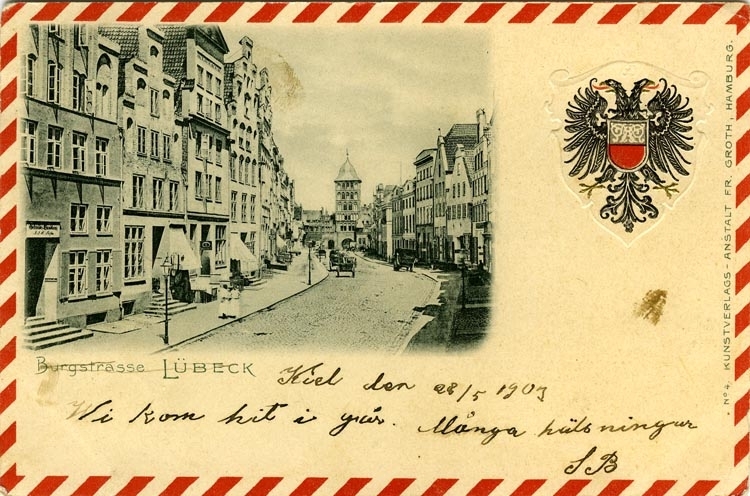 Burgstrasse LÜBECK
Kiel den 28/5 1903
Wi kom hit i går. Många hälsningar
SB
Nº 4. KUNSTVERLAGS-ANSTALT FR. GROTH, HAMBURG.